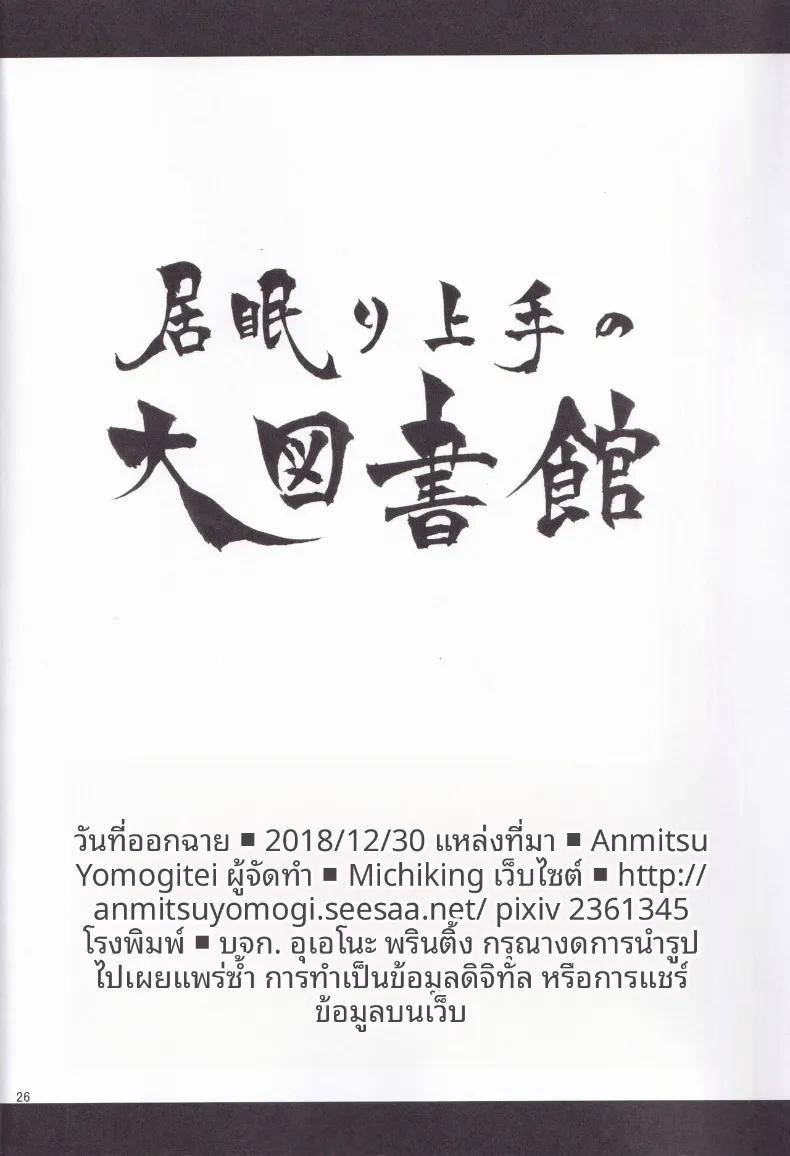 居眠り上手の
大図書館
วันที่ออกฉาย ■ 2018/12/30 แหล่งที่มา ■ Anmitsu
Yomogitei ผู้จัดทำ ■ Michiking เว็บไซต์ ■ http://
anmitsuyomogi.seesaa.net/ pixiv 2361345
โรงพิมพ์ ■ บจก. อุเอโนะ พรินติ้ง กรุณางดการนำรูป
ไปเผยแพร่ซ้ำ การทำเป็นข้อมูลดิจิทัล หรือการแชร์
ข้อมูลบนเว็บ
26